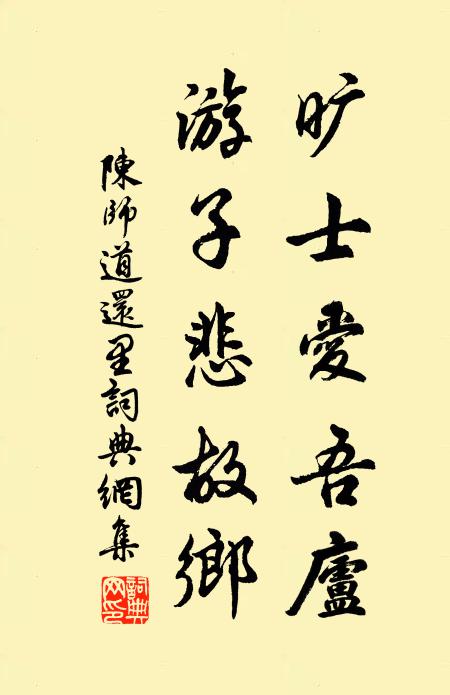 旷士愛吾廬
游子悲故鄉
陳師道還里詞典網集
詞典网印